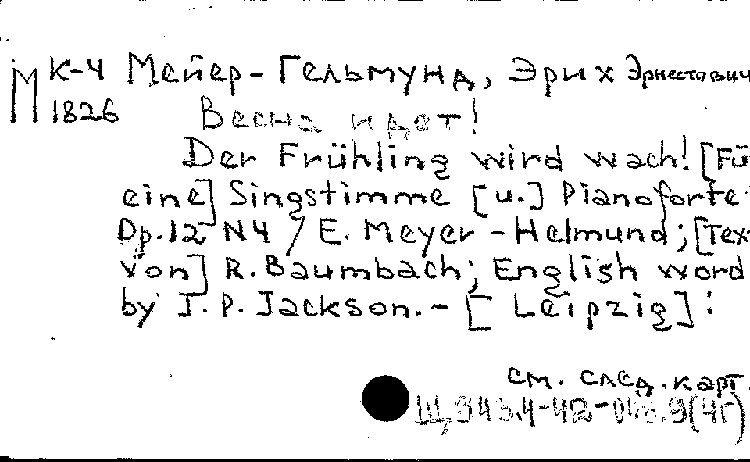 М К-4 Мейер-Гельмунд, Эрих Эрнестович
1826 Весна идет!
Der Frühling wird wach! [Fü
eine] Singstimme [u.] Pianoforte
Op.12 N4 / E. Meyer-Helmund; [Tex
von] R. Baumbach; English word
by J. P. Jackson. - [Leipzig] :
см. след. карт.